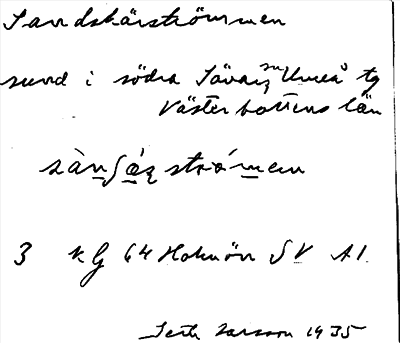 Sandskärströmmen
sund i södra Sävar sn Umeå tg
Västerbottens län
sàn∫á̱ʐ strö́men
3 kG 64 Holmön SV A1.
Seth Larsson 1935